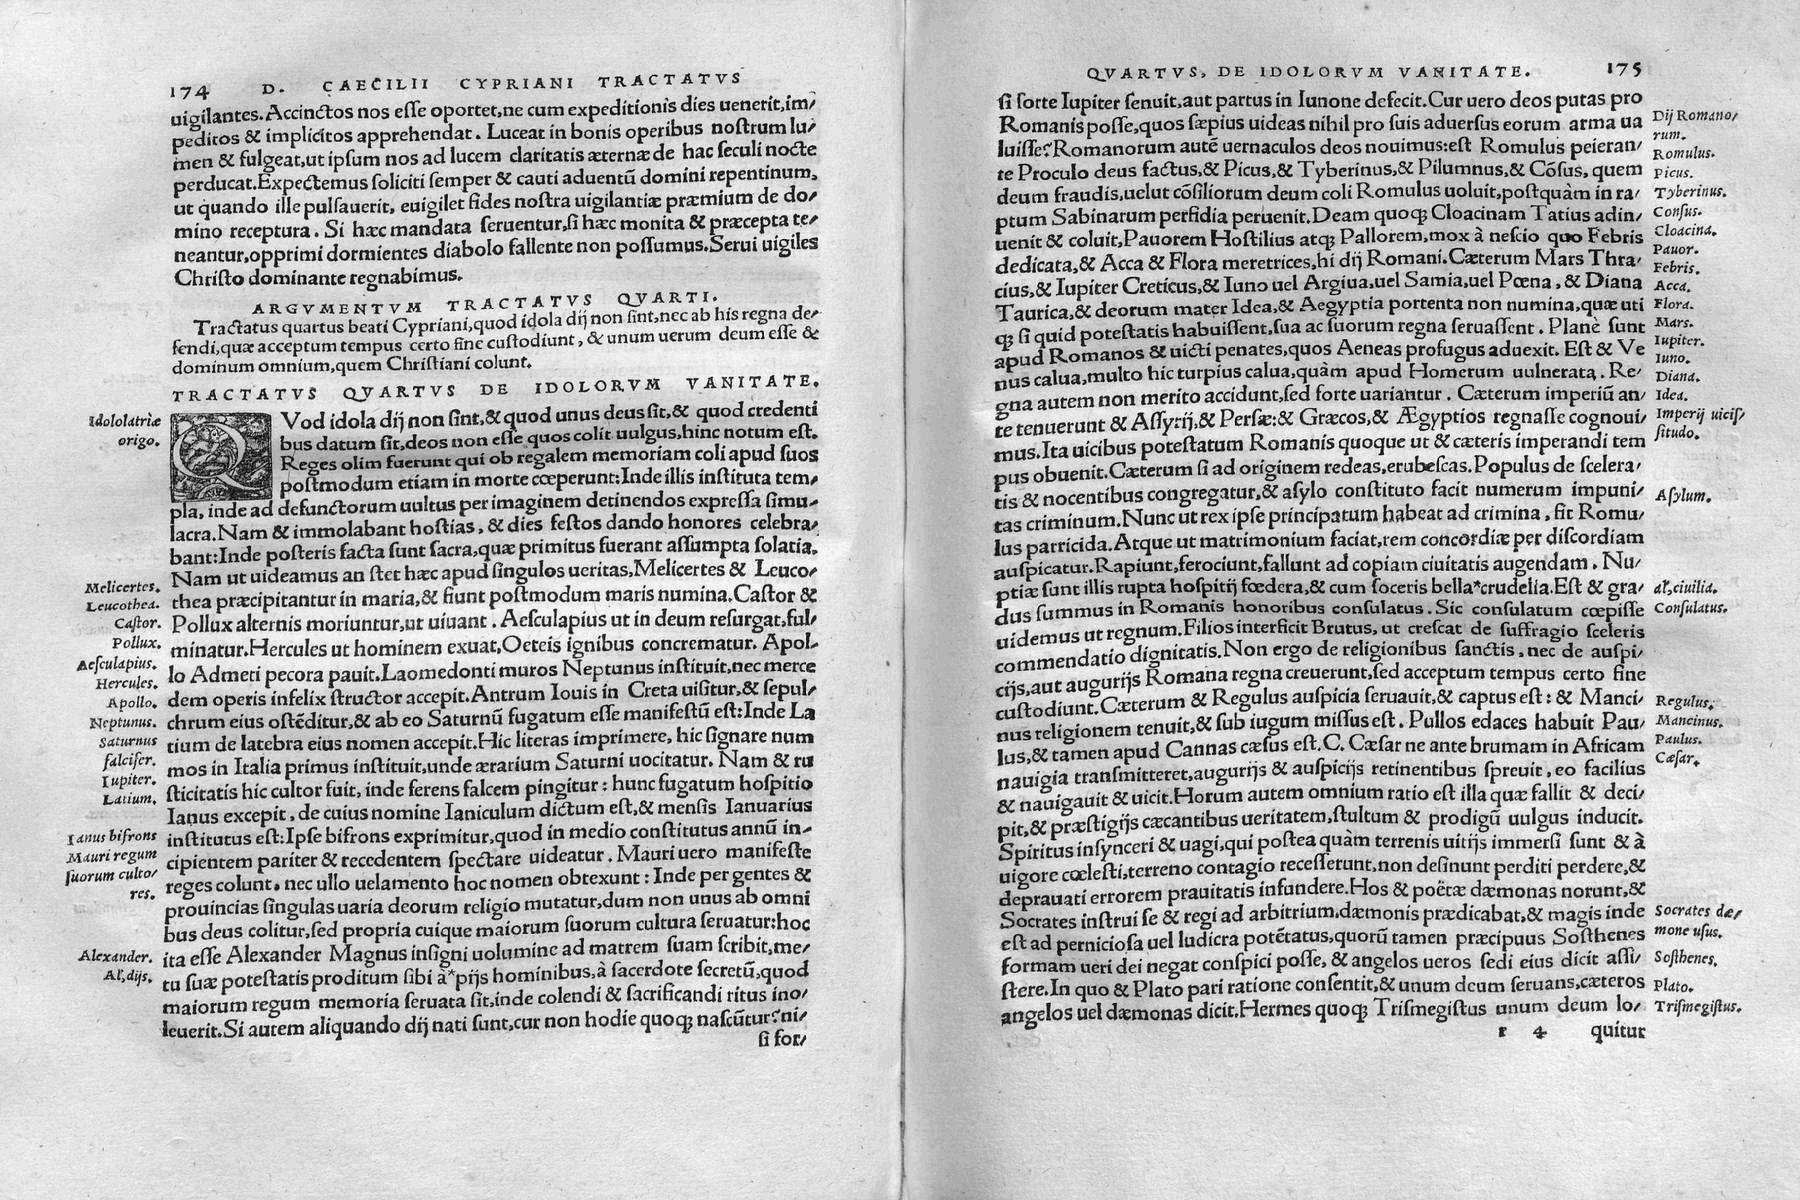 174 D. CAECILII CYPRIANI TRACTATVS
uigilantes. Accinctos nos esse oportet, ne cum expeditionis dies uenerit, im/
peditos & implicitos apprehendat. Luceat in bonis operibus nostrum lu/
men & fulgeat, ut ipsum nos ad lucem claritatis æternæ de hac seculi nocte
perducat. Expectemus soliciti semper & cauti aduentũ domini repentinum,
ut quando ille pulsauerit, euigilet fides nostra uigilantiæ præmium de do/
mino receptura. Si hæc mandata seruentur, si hæc monita & præcepta te/
neantur, opprimi dormientes diabolo fallente non possumus. Serui uigiles
Christo dominante regnabimus.
ARGVMENTVM TRACTATVS QVARTI.
Tractatus quartus beati Cypriani, quod idola dij non sint, nec ab his regna de/
fendi, quæ acceptum tempus certo fine custodiunt, & unum uerum deum esse &
dominum omnium, quem Christiani colunt.
TRACTATVS QVARTVS DE IDOLORVM VANITATE.
Idololatriæ
origo.
QVod idola dij non sint, & quod unus deus sit, & quod credenti
bus datum sit, deos non esse quos colit uulgus, hinc notum est.
Reges olim fuerunt qui ob regalem memoriam coli apud suos
postmodum etiam in morte cœperunt: Inde illis instituta tem/
pla, inde ad defunctorum uultus per imaginem detinendos expressa simu/
lacra. Nam & immolabant hostias, & dies festos dando honores celebra/
bant: Inde posteris facta sunt sacra, quæ primitus fuerant assumpta solatia.
Nam ut uideamus an stet hæc apud singulos ueritas, Melicertes & Leuco/
thea præcipitantur in maria, & fiunt postmodum maris numina. Castor &
Pollux alternis moriuntur, ut uiuant. Aesculapius ut in deum resurgat, ful/
minatur. Hercules ut hominem exuat, Oeteis ignibus concrematur. Apol/
lo Admeti pecora pauit. Laomedonti muros Neptunus instituit, nec merce
dem operis infelix structor accepit. Antrum Iouis in Creta uisitur, & sepul/
chrum eius ostẽditur, & ab eo Saturnũ fugatum esse manifestũ est: Inde La
tium de latebra eius nomen accepit. Hic literas imprimere, hic signare num
mos in Italia primus instituit, unde ærarium Saturni uocitatur. Nam & ru
sticitatis hic cultor fuit, inde ferens falcem pingitur: hunc fugatum hospitio
Ianus excepit, de cuius nomine Ianiculum dictum est, & mensis Ianuarius
institutus est: Ipse bifrons exprimitur, quod in medio constitutus annũ in/
cipientem pariter & recedentem spectare uideatur. Mauri uero manifeste
reges colunt, nec ullo uelamento hoc nomen obtexunt: Inde per gentes &
prouincias singulas uaria deorum religio mutatur, dum non unus ab omni
bus deus colitur, sed propria cuique maiorum suorum cultura seruatur: hoc
ita esse Alexander Magnus insigni uolumine ad matrem suam scribit, me/
tu suæ potestatis proditum sibi à*prijs hominibus, à sacerdote secretũ, quod
maiorum regum memoria seruata sit, inde colendi & sacrificandi ritus ino/
leuerit. Si autem aliquando dij nati sunt, cur non hodie quoqꝫ nascũtur? ni/
si for/
Melicertes.
Leucothea.
Castor.
Pollux.
Aesculapius.
Hercules.
Apollo.
Neptunus.
Saturnus
falcifer.
Iupiter.
Latium.
Ianus bifrons
Mauri regum
suorum culto/
res.
Alexander.
Al', dijs.
QVARTVS, DE IDOLORVM VANITATE. 175
si forte Iupiter senuit, aut partus in Iunone defecit. Cur uero deos putas pro
Romanis posse, quos sæpius uideas nihil pro suis aduersus eorum arma ua
luisse? Romanorum autẽ uernaculos deos nouimus: est Romulus peieran/
te Proculo deus factus, & Picus, & Tyberinus, & Pilumnus, & Cõsus, quem
deum fraudis, uelut cõsiliorum deum coli Romulus uoluit, postquàm in ra/
ptum Sabinarum perfidia peruenit. Deam quoqꝫ Cloacinam Tatius adin/
uenit & coluit, Pauorem Hostilius atqꝫ Pallorem, mox à nescio quo Febris
dedicata, & Acca & Flora meretrices, hi dij Romani. Cæterum Mars Thra/
cius, & Iupiter Creticus, & Iuno uel Argiua, uel Samia, uel Pœna, & Diana
Taurica, & deorum mater Idea, & Aegyptia portenta non numina, quæ uti
qꝫ si quid potestatis habuissent, sua ac suorum regna seruassent. Planè sunt
apud Romanos & uicti penates, quos Aeneas profugus aduexit. Est & Ve
nus calua, multo hic turpius calua, quàm apud Homerum uulnerata. Re/
gna autem non merito accidunt, sed forte uariantur. Cæterum imperiũ an/
te tenuerunt & Assyrij, & Persæ: & Græcos, & Ægyptios regnasse cognoui/
mus. Ita uicibus potestatum Romanis quoque ut & cæteris imperandi tem
pus obuenit. Cæterum si ad originem redeas, erubescas. Populus de scelera/
tis & nocentibus congregatur, & asylo constituto facit numerum impuni/
tas criminum. Nunc ut rex ipse principatum habeat ad crimina, fit Romu/
lus parricida. Atque ut matrimonium faciat, rem concordiæ per discordiam
auspicatur. Rapiunt, ferociunt, fallunt ad copiam ciuitatis augendam. Nu/
ptiæ sunt illis rupta hospitij fœdera, & cum soceris bella*crudelia. Est & gra/
dus summus in Romanis honoribus consulatus. Sic consulatum cœpisse
uidemus ut regnum. Filios interficit Brutus, ut crescat de suffragio sceleris
commendatio dignitatis. Non ergo de religionibus sanctis, nec de auspi/
cijs, aut augurijs Romana regna creuerunt, sed acceptum tempus certo fine
custodiunt. Cæterum & Regulus auspicia seruauit, & captus est: & Manci/
nus religionem tenuit, & sub iugum missus est. Pullos edaces habuit Pau/
lus, & tamen apud Cannas cæsus est. C. Cæsar ne ante brumam in Africam
nauigia transmitteret, augurijs & auspicijs retinentibus spreuit, eo facilius
& nauigauit & uicit. Horum autem omnium ratio est illa quæ fallit & deci/
pit, & præstigijs cæcantibus ueritatem, stultum & prodigũ uulgus inducit.
Spiritus insynceri & uagi, qui postea quàm terrenis uitijs immersi sunt & à
uigore cœlesti, terreno contagio recesserunt, non desinunt perditi perdere, &
deprauati errorem prauitatis infundere. Hos & poëtæ dæmonas norunt, &
Socrates instrui se & regi ad arbitrium, dæmonis prædicabat, & magis inde
est ad perniciosa uel ludicra potẽtatus, quorũ tamen præcipuus Sosthenes
formam ueri dei negat conspici posse, & angelos ueros sedi eius dicit assi/
stere. In quo & Plato pari ratione consentit, & unum deum seruans, cæteros
angelos uel dæmonas dicit. Hermes quoqꝫ Trismegistus unum deum lo/
r 4 quitur
Dij Romano/
rum.
Romulus.
Picus.
Tyberinus.
Consus.
Cloacina.
Pauor.
Febris.
Acca.
Flora.
Mars.
Iupiter.
Iuno.
Diana.
Idea.
Imperij uicis/
situdo.
Asylum.
al', ciuilia.
Consulatus.
Regulus.
Mancinus.
Paulus.
Cæsar.
Socrates dæ/
mone usus.
Sosthenes.
Plato.
Trismegistus.